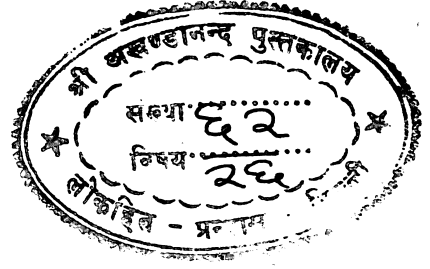 श्री अखण्डानन्द पुस्तकालय
संख्या ६२
विषय २६
लोकहित -